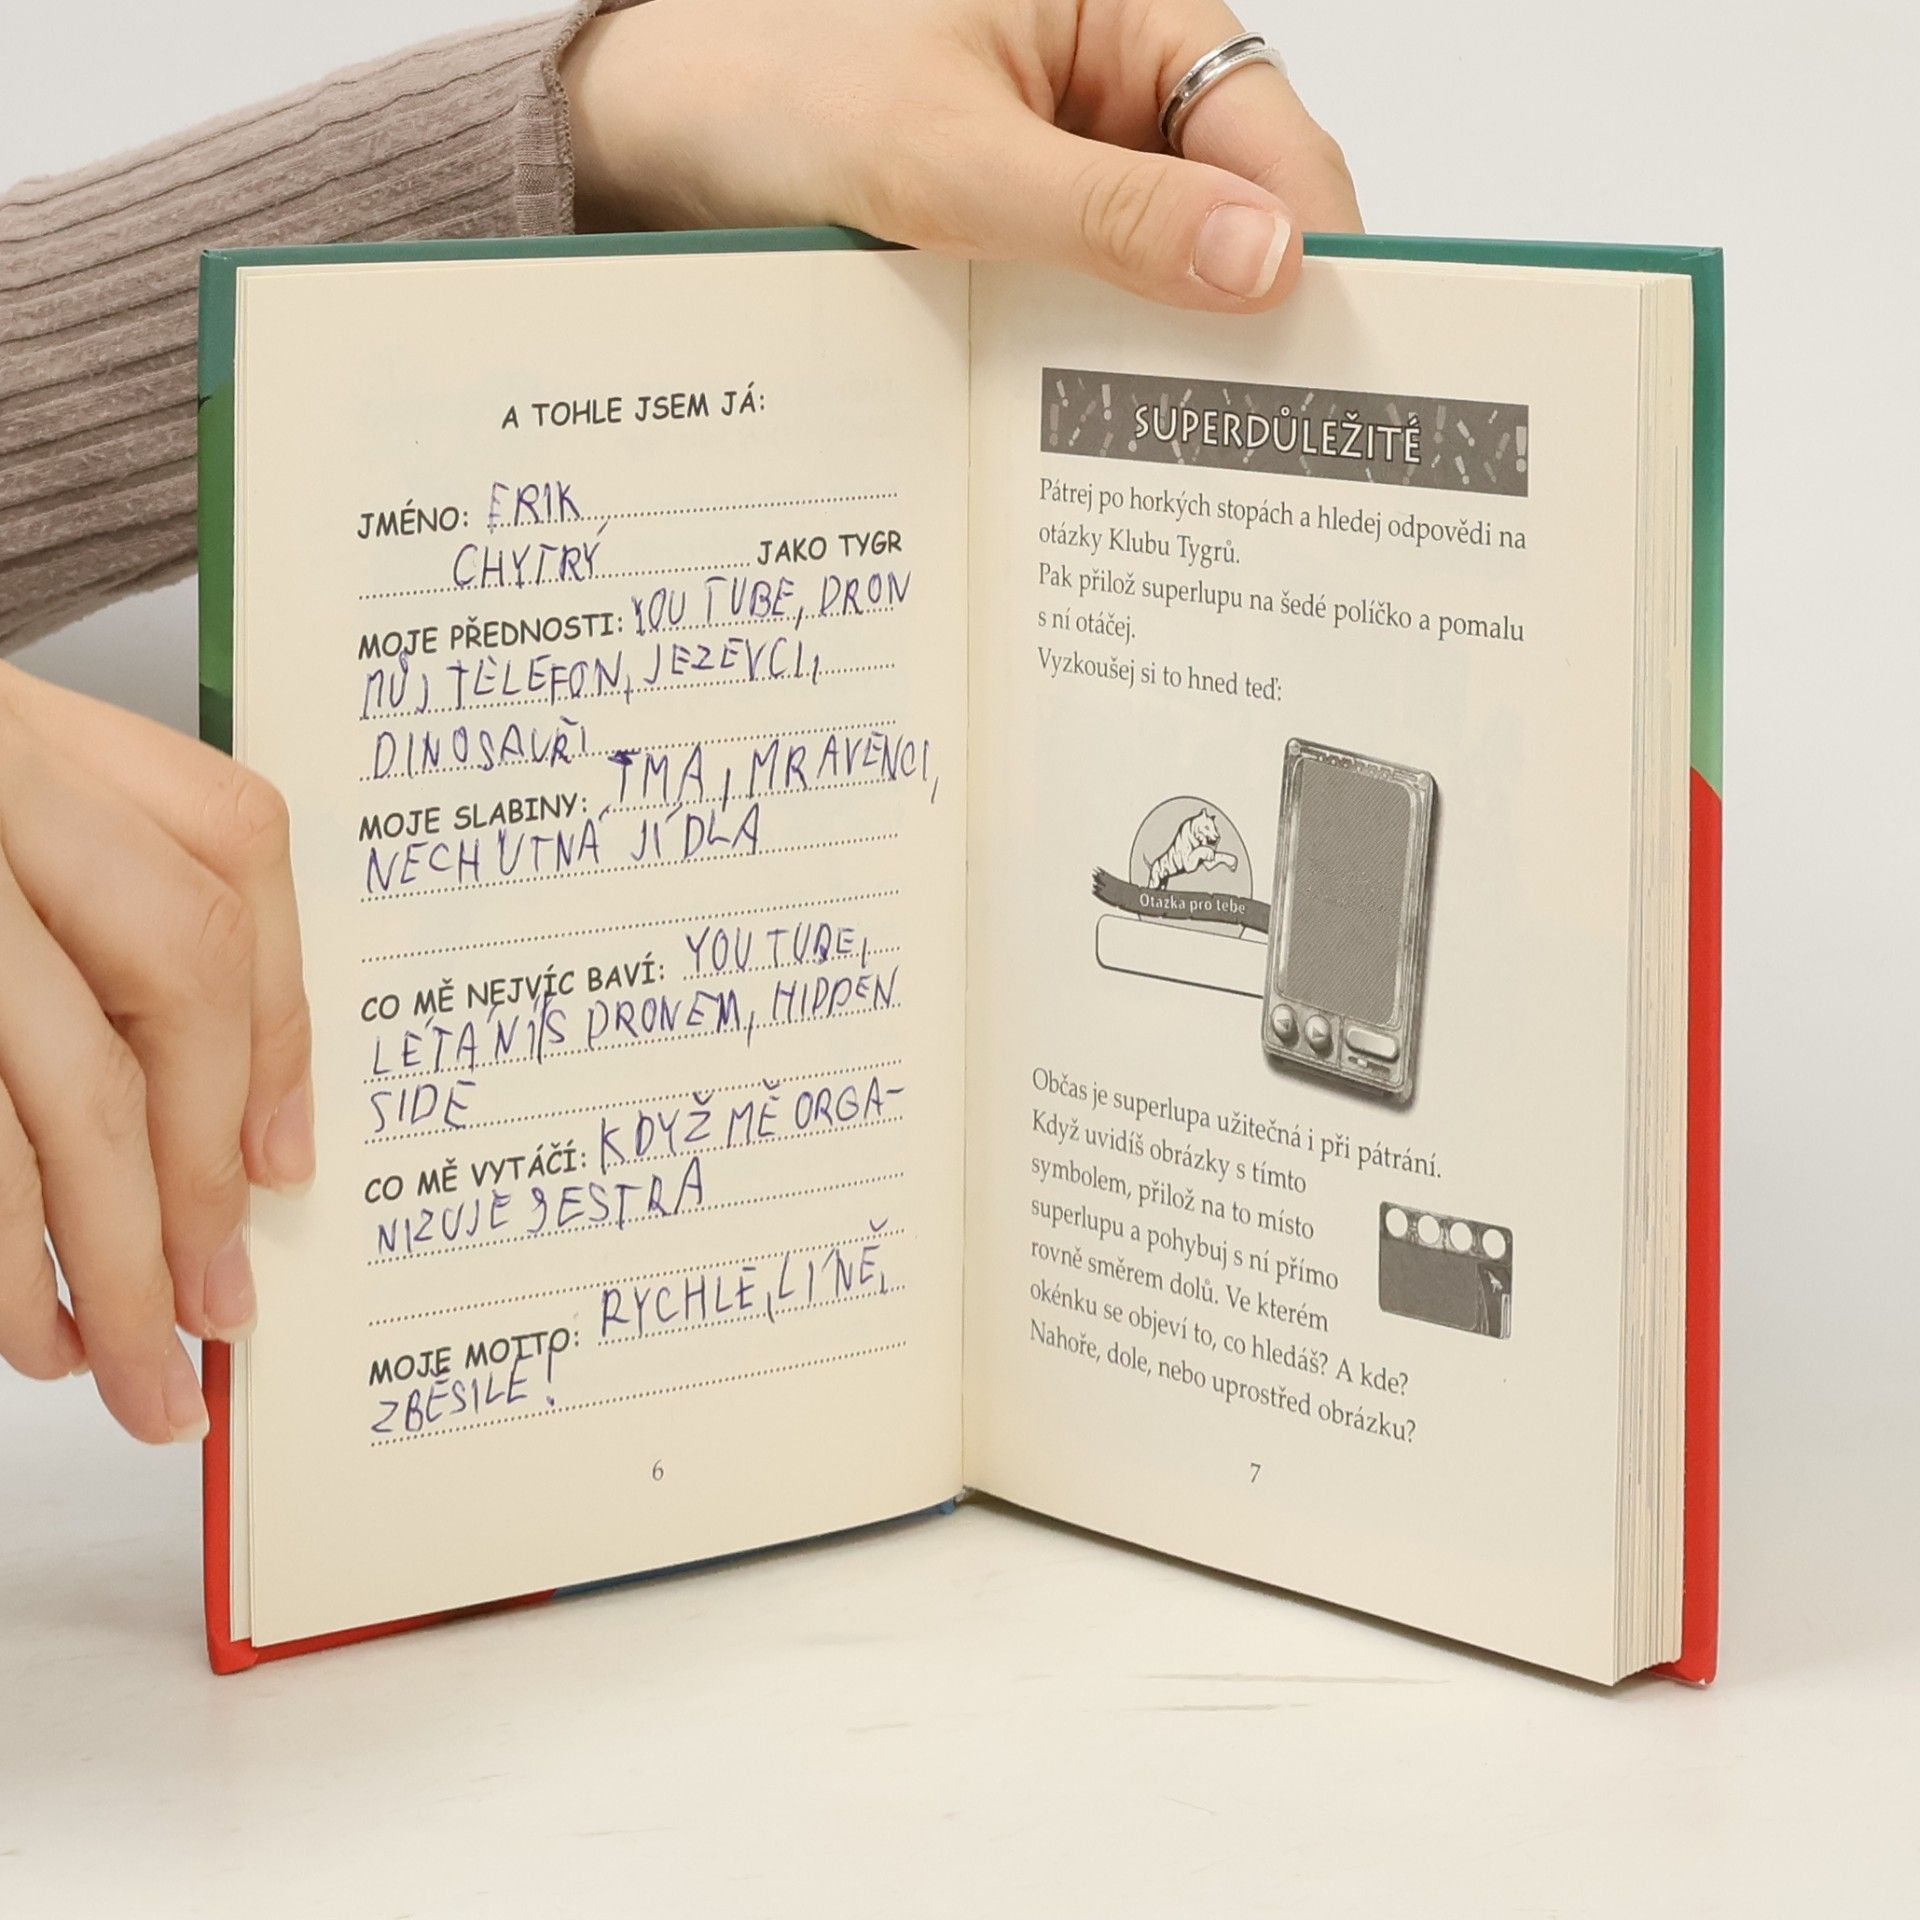 A TOHLE JSEM JÁ:
JMÉNO: ERIK
CHYTRÝ JAKO TYGR
MOJE PŘEDNOSTI: YOU TUBE, DRON
MŮJ TELEFON, JEZEVCI,
DINOSAUŘI
MOJE SLABINY: TMA, MRAVENCI,
NECHUTNÁ JÍDLA
CO MĚ NEJVÍC BAVÍ: YOU TUBE,
LÉTÁNÍ S DRONEM, HIDDEN
SIDE
CO MĚ VYTÁČÍ: KDYŽ MĚ ORGA-
NIZUJE SESTRA
MOJE MOTTO: RYCHLE, LÍNĚ,
ZBĚSILE!
6
SUPERDŮLEŽITÉ
Pátrej po horkých stopách a hledej odpovědi na
otázky Klubu Tygrů.
Pak přilož superlupu na šedé políčko a pomalu
s ní otáčej.
Vyzkoušej si to hned teď:
Otázka pro tebe
Občas je superlupa užitečná i při pátrání.
Když uvidíš obrázky s tímto
symbolem, přilož na to místo
superlupu a pohybuj s ní přímo
rovně směrem dolů. Ve kterém
okénku se objeví to, co hledáš? A kde?
Nahoře, dole, nebo uprostřed obrázku?
7